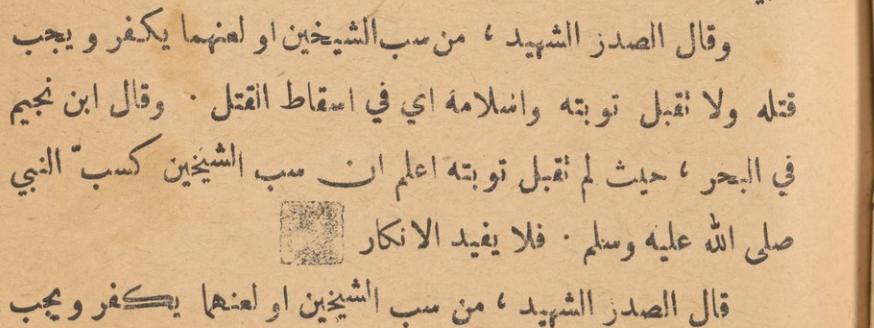 وقال الصدر الشهيد ، من سب الشيخين او لعنهما يكفر و يجب
قتله ولا تقبل توبته واسلامه اي في اسقاط القتل . وقال ابن نجيم
في البحر ، حيث لم تقبل توبته اعلم ان سب الشيخين كسبّ النبي
صلى الله عليه وسلم . فلا يفيد الانكار
قال الصدر الشهيد ، من سب الشيخين او لعنهما يكفر و يجب